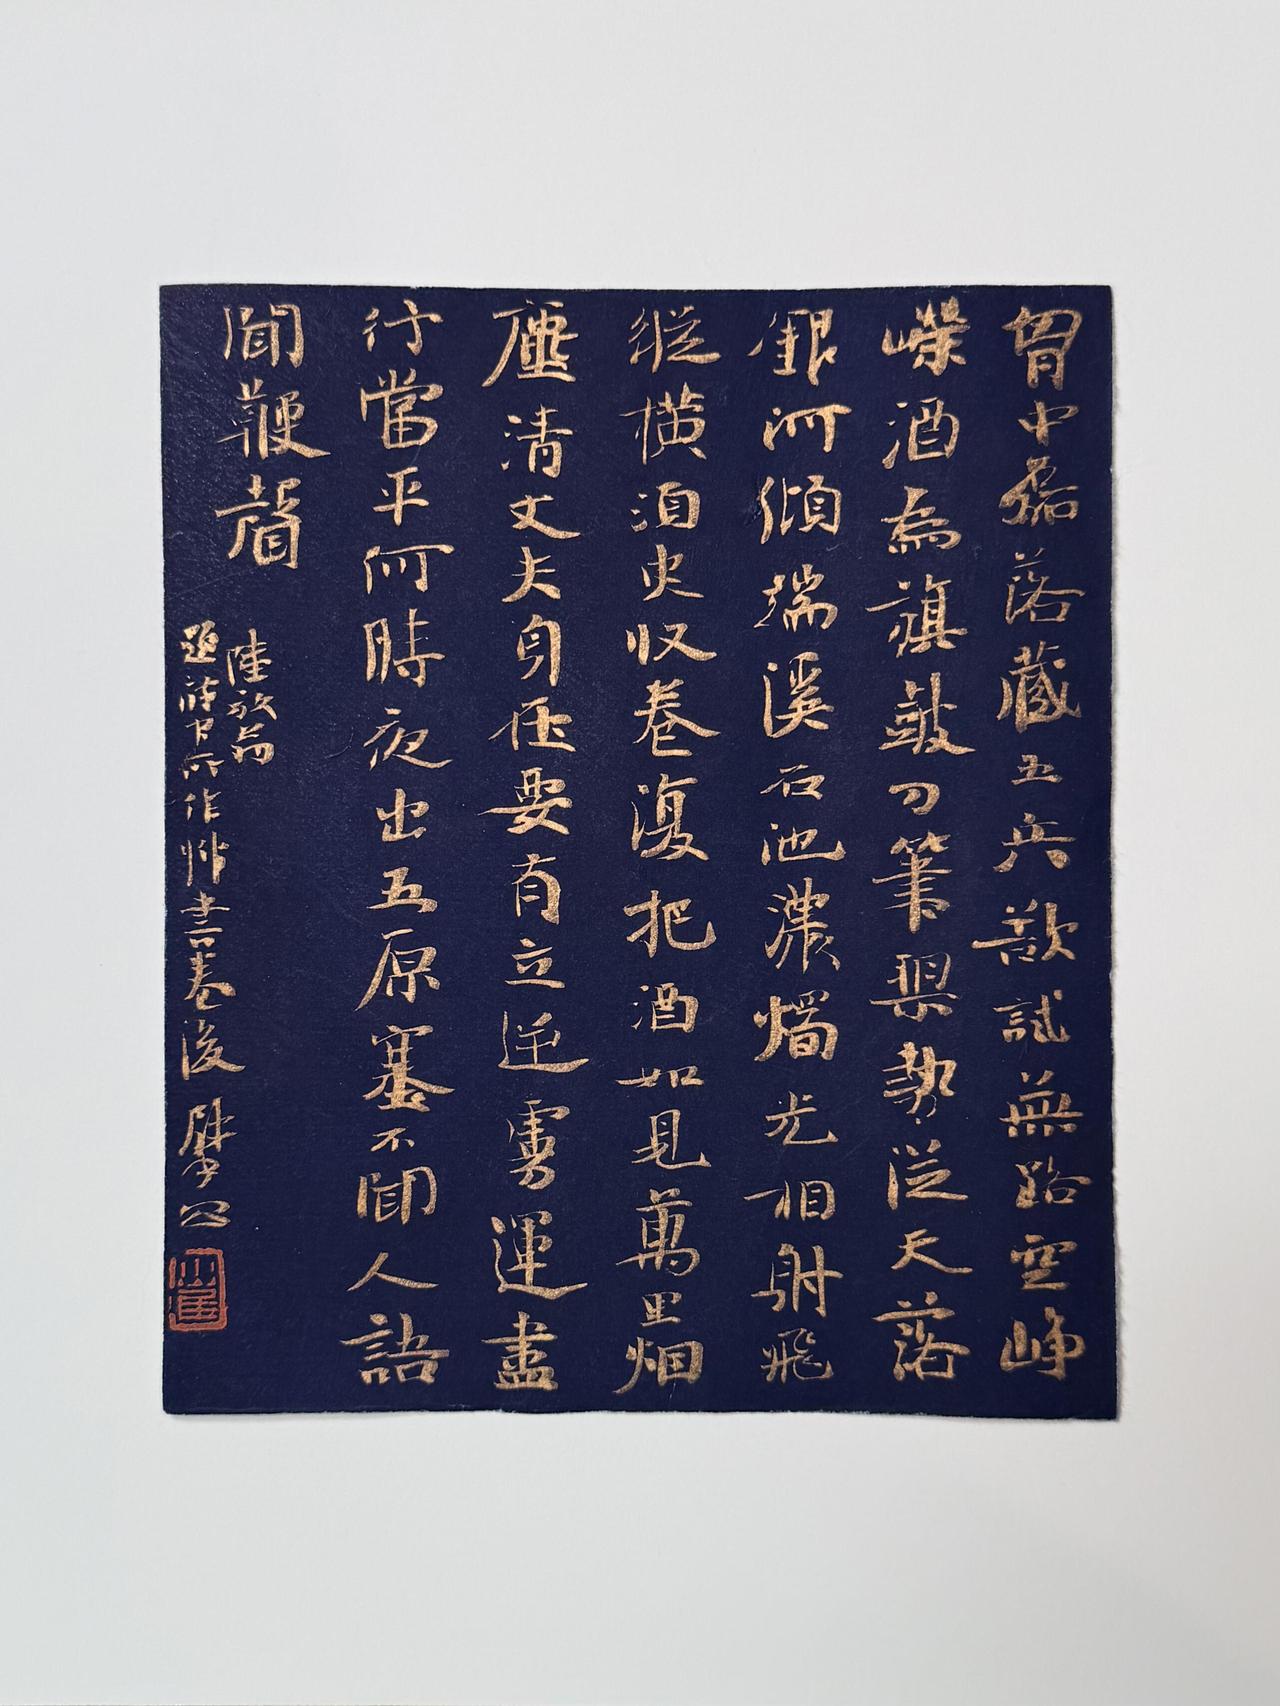 胷中磊落藏五兵欲試無路空崢
嶸酒為旗鼓刀筆槊勢從天落
銀河傾端溪石池濃燭光相射飛
縱橫須臾收卷復把酒如見萬里烟
塵清丈夫身在要有立逆虜運盡
行當平何時夜出五原塞不聞人語
聞鞭聲
陸放翁
題醉中所作草書卷後